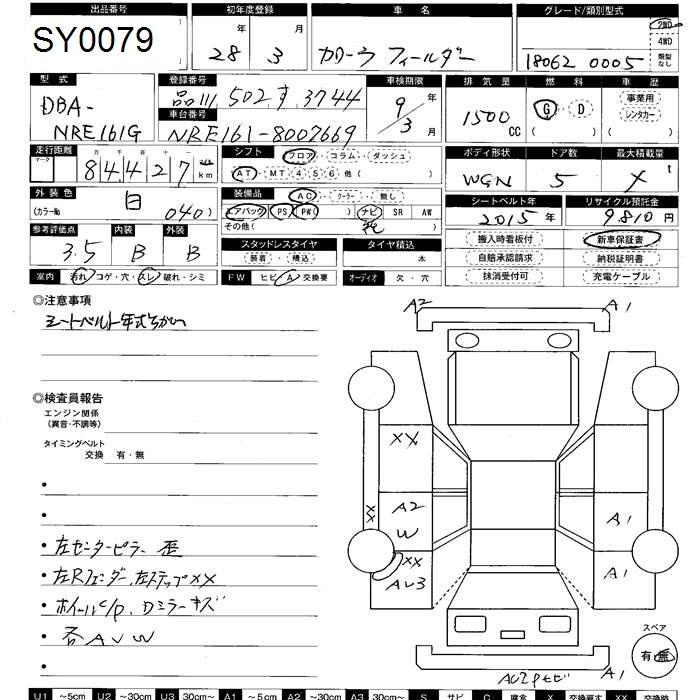 出品番号 初年度登録 車名 グレード/類別型式
SY0079 年 月 2WD
28 3 カローラ フィールダー 4WD
18062 0005 類型なし
型式 登録番号 車検期限 排気量 燃料 車歴
DBA- 品川 502 す 3744 9年 1500 G・D 事業用
NRE161G 車台番号 3月 CC レンタカー
NRE161-8007669
走行距離 シフト フロア・コラム・ダッシュ ボディ形状 ドア数 最大積載量
マーク 万 千 百 十
84427 km AT・MT 4 5 6 他( ) WGN 5 X
外装色 装備品 AC・クーラー・無し シートベルト年 リサイクル預託金
(カラーNo 白 040) エアバック PS PW ナビ SR AW 2015年 9810円
参考評価点 内装 外装 その他( ) 搬入時看板付 新車保証書
3.5 B B スタッドレスタイヤ タイヤ積込 自賠承認請求 納税証明書
装着・積込 本 抹消受付可 充電ケーブル
室内 汚れ・コゲ・穴・スレ・破れ・シミ FW ヒビ・A・交換要 オーディオ 欠・穴
◎注意事項
シートベルト年式ちがい
A2 A1
◎検査員報告
エンジン関係
(異音・不調等)
タイミングベルト
交換 有・無
XX
XX A2 W A1
・左センターピラー 歪
・左Rフェンダー、左ステップXX
XX AU3 A1
・ホイールC/P、Dミラーキズ
・各AUW
スペア
有・無
A1
U1 ~5cm U2 ~30cm U3 30cm~ A1 ~5cm A2 ~30cm A3 30cm~ S サビ C 腐食 X 交換要す XX 交換跡